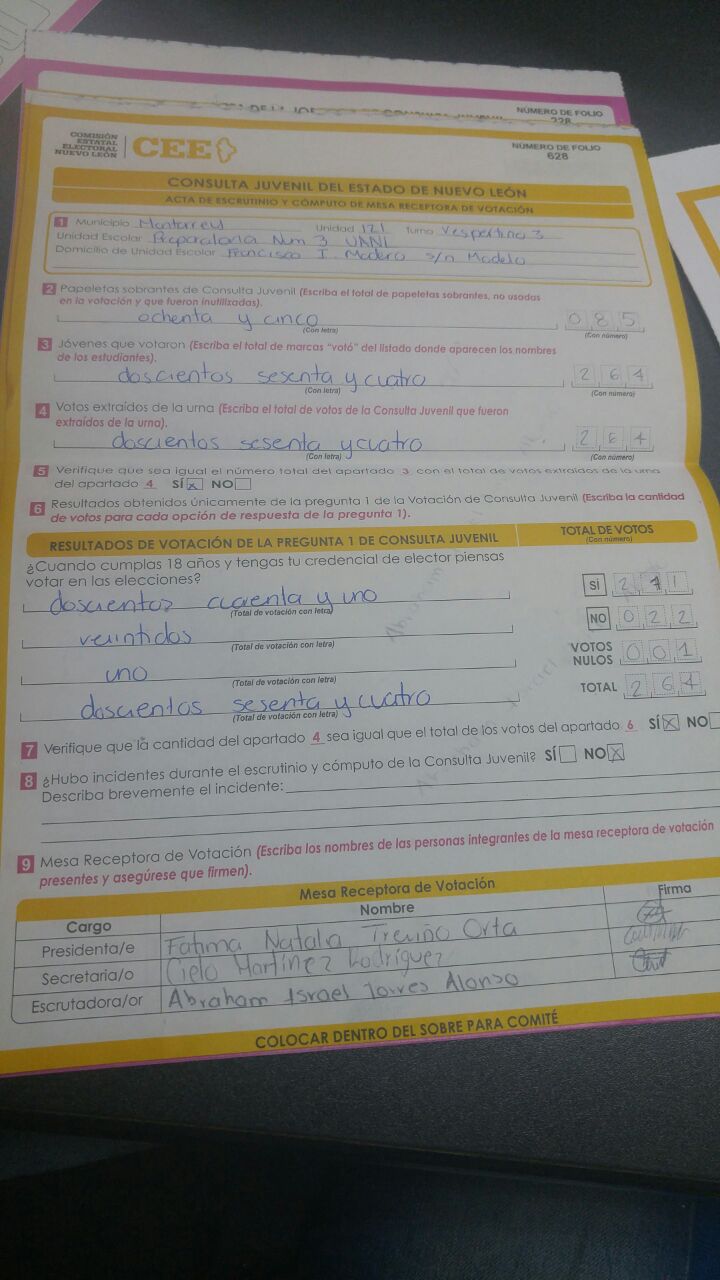 NÚMERO DE FOLIO
228
COMISIÓN
ESTATAL
ELECTORAL
NUEVO LEÓN
CEE
NÚMERO DE FOLIO
628
CONSULTA JUVENIL DEL ESTADO DE NUEVO LEÓN
ACTA DE ESCRUTINIO Y CÓMPUTO DE MESA RECEPTORA DE VOTACIÓN
1 Municipio Monterrey Unidad 121 Turno Vespertino 3
Unidad Escolar Preparatoria Num 3 UANL
Domicilio de Unidad Escolar Francisco I. Madero s/n Modelo
2 Papeletas sobrantes de Consulta Juvenil (Escriba el total de papeletas sobrantes, no usadas
en la votación y que fueron inutilizadas).
ochenta y cinco 085
(Con letra) (Con número)
3 Jóvenes que votaron (Escriba el total de marcas "votó" del listado donde aparecen los nombres
de los estudiantes).
doscientos sesenta y cuatro 264
(Con letra) (Con número)
4 Votos extraídos de la urna (Escriba el total de votos de la Consulta Juvenil que fueron
extraídos de la urna).
doscientos sesenta y cuatro 264
(Con letra) (Con número)
5 Verifique que sea igual el número total del apartado 3 con el total de votos extraídos de la urna
del apartado 4 SÍ X NO
6 Resultados obtenidos únicamente de la pregunta 1 de la Votación de Consulta Juvenil (Escriba la cantidad
de votos para cada opción de respuesta de la pregunta 1).
RESULTADOS DE VOTACIÓN DE LA PREGUNTA 1 DE CONSULTA JUVENIL TOTAL DE VOTOS
(Con número)
¿Cuando cumplas 18 años y tengas tu credencial de elector piensas
votar en las elecciones?
doscientos y uno SÍ 2 1
(Total de votación con letra)
veintidos NO 022
(Total de votación con letra)
uno VOTOS NULOS 001
(Total de votación con letra)
doscientos sesenta y cuatro TOTAL 264
(Total de votación con letra)
7 Verifique que la cantidad del apartado 4 sea igual que el total de los votos del apartado 6 SÍ X NO
8 ¿Hubo incidentes durante el escrutinio y cómputo de la Consulta Juvenil? SÍ NO X
Describa brevemente el incidente:
9 Mesa Receptora de Votación (Escriba los nombres de las personas integrantes de la mesa receptora de votación
presentes y asegúrese que firmen).
Mesa Receptora de Votación
Cargo Nombre Firma
Presidenta/e Fatima Natala Treviño Orta
Secretaria/o Cielo Martínez Rodríguez
Escrutadora/or Abraham Israel Torres Alonso
COLOCAR DENTRO DEL SOBRE PARA COMITÉ